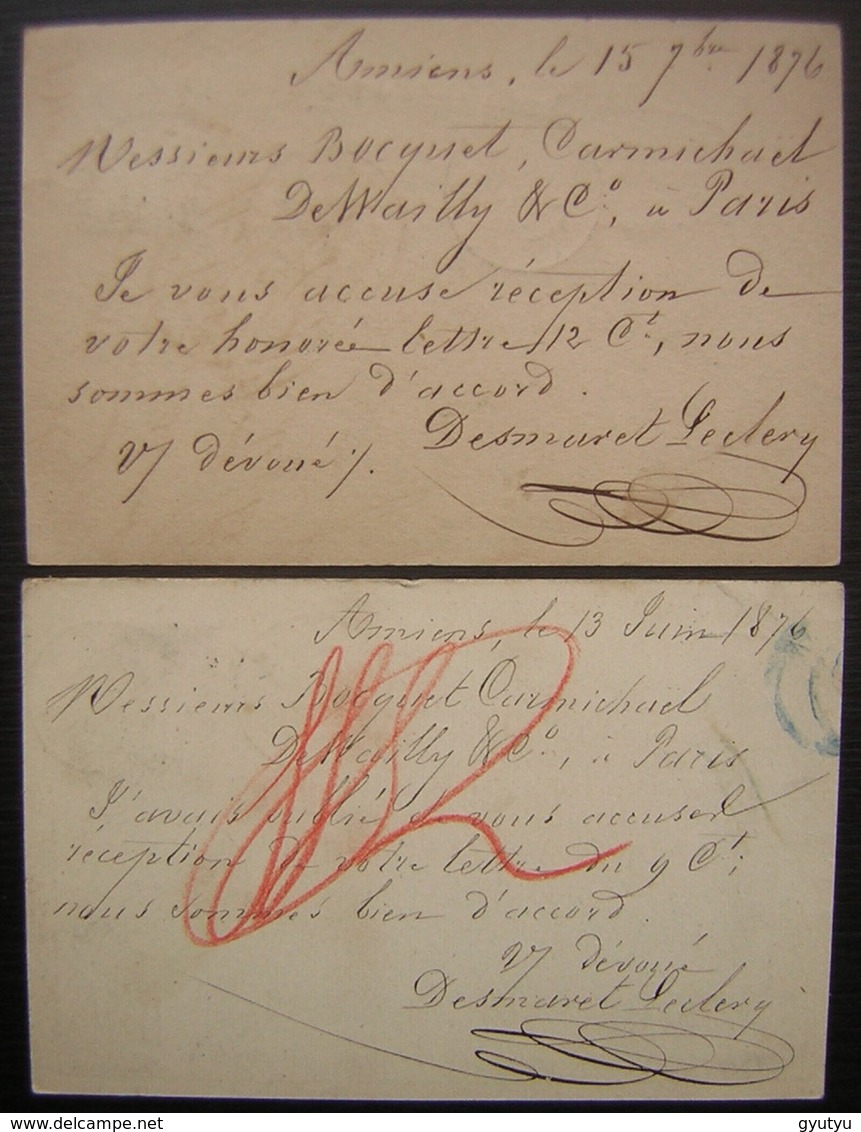 Amiens, le 15 7bre 1876
Messieurs Bocquet, Carmichaël
DeWailly & Co, à Paris
Je vous accuse réception de
votre honorée lettre 12 Ct, nous
sommes bien d'accord.
Desmaret Leclery
V/ dévoué /.
Amiens, le 13 Juin 1876
Messieurs Bocquet Carmichaël
DeWailly & Co, à Paris
J'avais oublié de vous accuser
réception de votre lettre du 9 Ct;
nous sommes bien d'accord.
V/ dévoué
Desmaret Leclery
delcampe.net
gyutyu